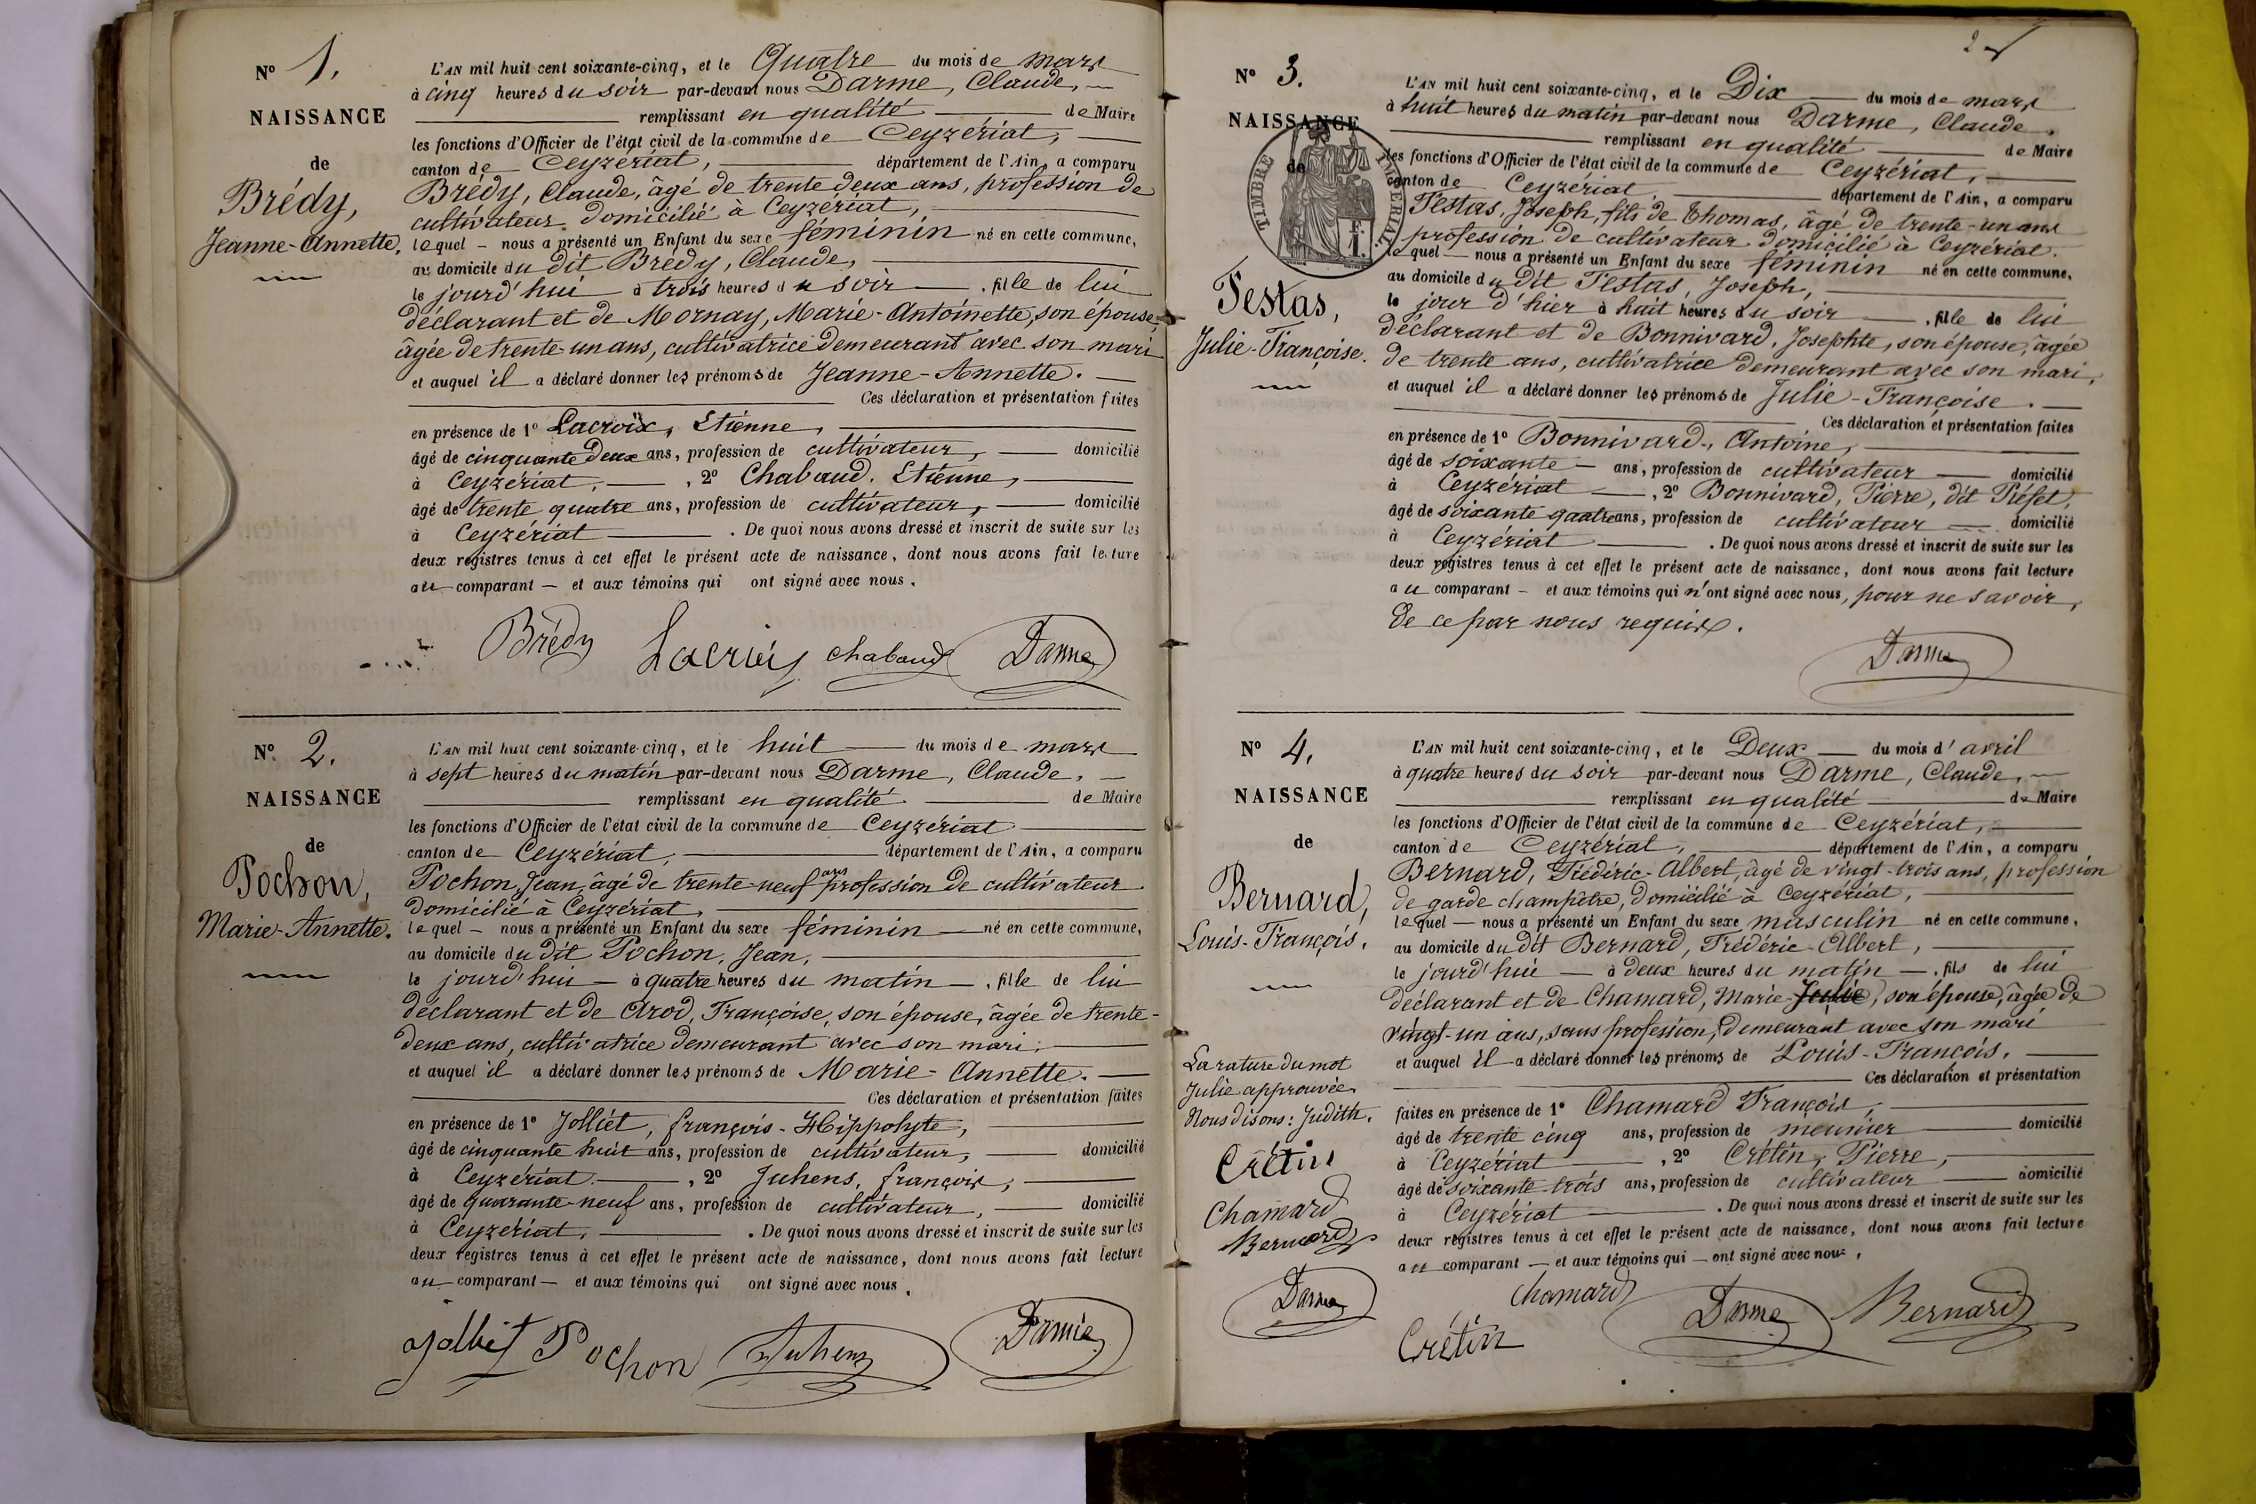 Nº 1.
NAISSANCE
de
Brédy,
Jeanne-Annette.
L'AN mil huit cent soixante-cinq, et le Quatre du mois de mars
à cinq heures du soir par-devant nous Darme, Claude,
remplissant en qualité de Maire
les fonctions d'Officier de l'état civil de la commune de Ceyzériat,
canton de Ceyzériat, département de l'Ain, a comparu
Brédy, Claude, âgé de trente deux ans, profession de
cultivateur domicilié à Ceyzériat,
lequel – nous a présenté un Enfant du sexe féminin né en cette commune,
au domicile du dit Brédy, Claude,
le jourd'hui à trois heures du soir . fille de lui
déclarant et de Mornay, Marie-Antoinette, son épouse,
âgée de trente un ans, cultivatrice demeurant avec son mari
et auquel il a déclaré donner les prénoms de Jeanne-Annette.
Ces déclaration et présentation faites
en présence de 1º Lacroix, Etienne,
âgé de cinquante deux ans, profession de cultivateur, domicilié
à Ceyzériat, , 2º Chabaud, Etienne,
âgé de trente quatre ans, profession de cultivateur, domicilié
à Ceyzériat . De quoi nous avons dressé et inscrit de suite sur les
deux registres tenus à cet effet le présent acte de naissance, dont nous avons fait lecture
au comparant – et aux témoins qui ont signé avec nous.
Brédy Lacroix chabaud Darme
Nº 2.
NAISSANCE
de
Pochon,
Marie-Annette.
L'AN mil huit cent soixante-cinq, et le huit du mois de mars
à sept heures du matin par-devant nous Darme, Claude,
remplissant en qualité de Maire
les fonctions d'Officier de l'état civil de la commune de Ceyzériat
canton de Ceyzériat, département de l'Ain, a comparu
Pochon, Jean, âgé de trente-neuf ans profession de cultivateur
domicilié à Ceyzériat,
lequel – nous a présenté un Enfant du sexe féminin né en cette commune,
au domicile du dit Pochon, Jean,
le jourd'hui – à quatre heures du matin – . fille de lui
déclarant et de Arod, Françoise, son épouse, âgée de trente-
deux ans, cultivatrice demeurant avec son mari,
et auquel il a déclaré donner les prénoms de Marie-Annette.
Ces déclaration et présentation faites
en présence de 1º Jolliet, françois-Hippolyte,
âgé de cinquante huit ans, profession de cultivateur, domicilié
à Ceyzériat , 2º Juhens, françois,
âgé de quarante-neuf ans, profession de cultivateur, domicilié
à Ceyzériat, . De quoi nous avons dressé et inscrit de suite sur les
deux registres tenus à cet effet le présent acte de naissance, dont nous avons fait lecture
au comparant – et aux témoins qui ont signé avec nous.
Jolliet Pochon Juhens Darme
2
Nº 3.
NAISSANCE
de
TIMBRE IMPÉRIAL
Testas,
Julie-Françoise.
L'AN mil huit cent soixante-cinq, et le Dix du mois de mars
à huit heures du matin par-devant nous Darme, Claude,
remplissant en qualité de Maire
les fonctions d'Officier de l'état civil de la commune de Ceyzériat,
canton de Ceyzériat, département de l'Ain, a comparu
Testas, Joseph, fils de Thomas, âgé de trente-un ans
profession de cultivateur domicilié à Ceyzériat.
lequel – nous a présenté un Enfant du sexe féminin né en cette commune,
au domicile du dit Testas, Joseph,
le jour d'hier à huit heures du soir . fille de lui
déclarant et de Bonnivard, Josephte, son épouse, âgée
de trente ans, cultivatrice demeurant avec son mari,
et auquel il a déclaré donner les prénoms de Julie-Françoise.
Ces déclaration et présentation faites
en présence de 1º Bonnivard, Antoine,
âgé de soixante – ans, profession de cultivateur domicilié
à Ceyzériat , 2º Bonnivard, Pierre, dit Piéfet,
âgé de soixante quatre ans, profession de cultivateur domicilié
à Ceyzériat . De quoi nous avons dressé et inscrit de suite sur les
deux registres tenus à cet effet le présent acte de naissance, dont nous avons fait lecture
au comparant – et aux témoins qui n'ont signé avec nous, pour ne savoir,
de ce par nous requis.
Darme
Nº 4.
NAISSANCE
de
Bernard,
Louis-François.
La rature du mot
Julie approuvée
Nous disons: Judith.
Crétin
Chamard
Bernard
Darme
L'AN mil huit cent soixante-cinq, et le Deux du mois d'avril
à quatre heures du soir par-devant nous Darme, Claude,
remplissant en qualité de Maire
les fonctions d'Officier de l'état civil de la commune de Ceyzériat,
canton de Ceyzériat, département de l'Ain, a comparu
Bernard, Frédéric-Albert, âgé de vingt-trois ans, profession
de garde champêtre, domicilié à Ceyzériat,
lequel – nous a présenté un Enfant du sexe masculin né en cette commune,
au domicile du dit Bernard, Frédéric-Albert,
le jourd'hui – à deux heures du matin – . fils de lui
déclarant et de Chamard, Marie-Julie, son épouse, âgée de
vingt-un ans, sans profession, demeurant avec son mari
et auquel il a déclaré donner les prénoms de Louis-François.
Ces déclaration et présentation
faites en présence de 1º Chamard François,
âgé de trente cinq ans, profession de meunier domicilié
à Ceyzériat , 2º Crétin, Pierre,
âgé de soixante-trois ans, profession de cultivateur domicilié
à Ceyzériat . De quoi nous avons dressé et inscrit de suite sur les
deux registres tenus à cet effet le présent acte de naissance, dont nous avons fait lecture
au comparant – et aux témoins qui – ont signé avec nous.
Crétin chamard Darme Bernard